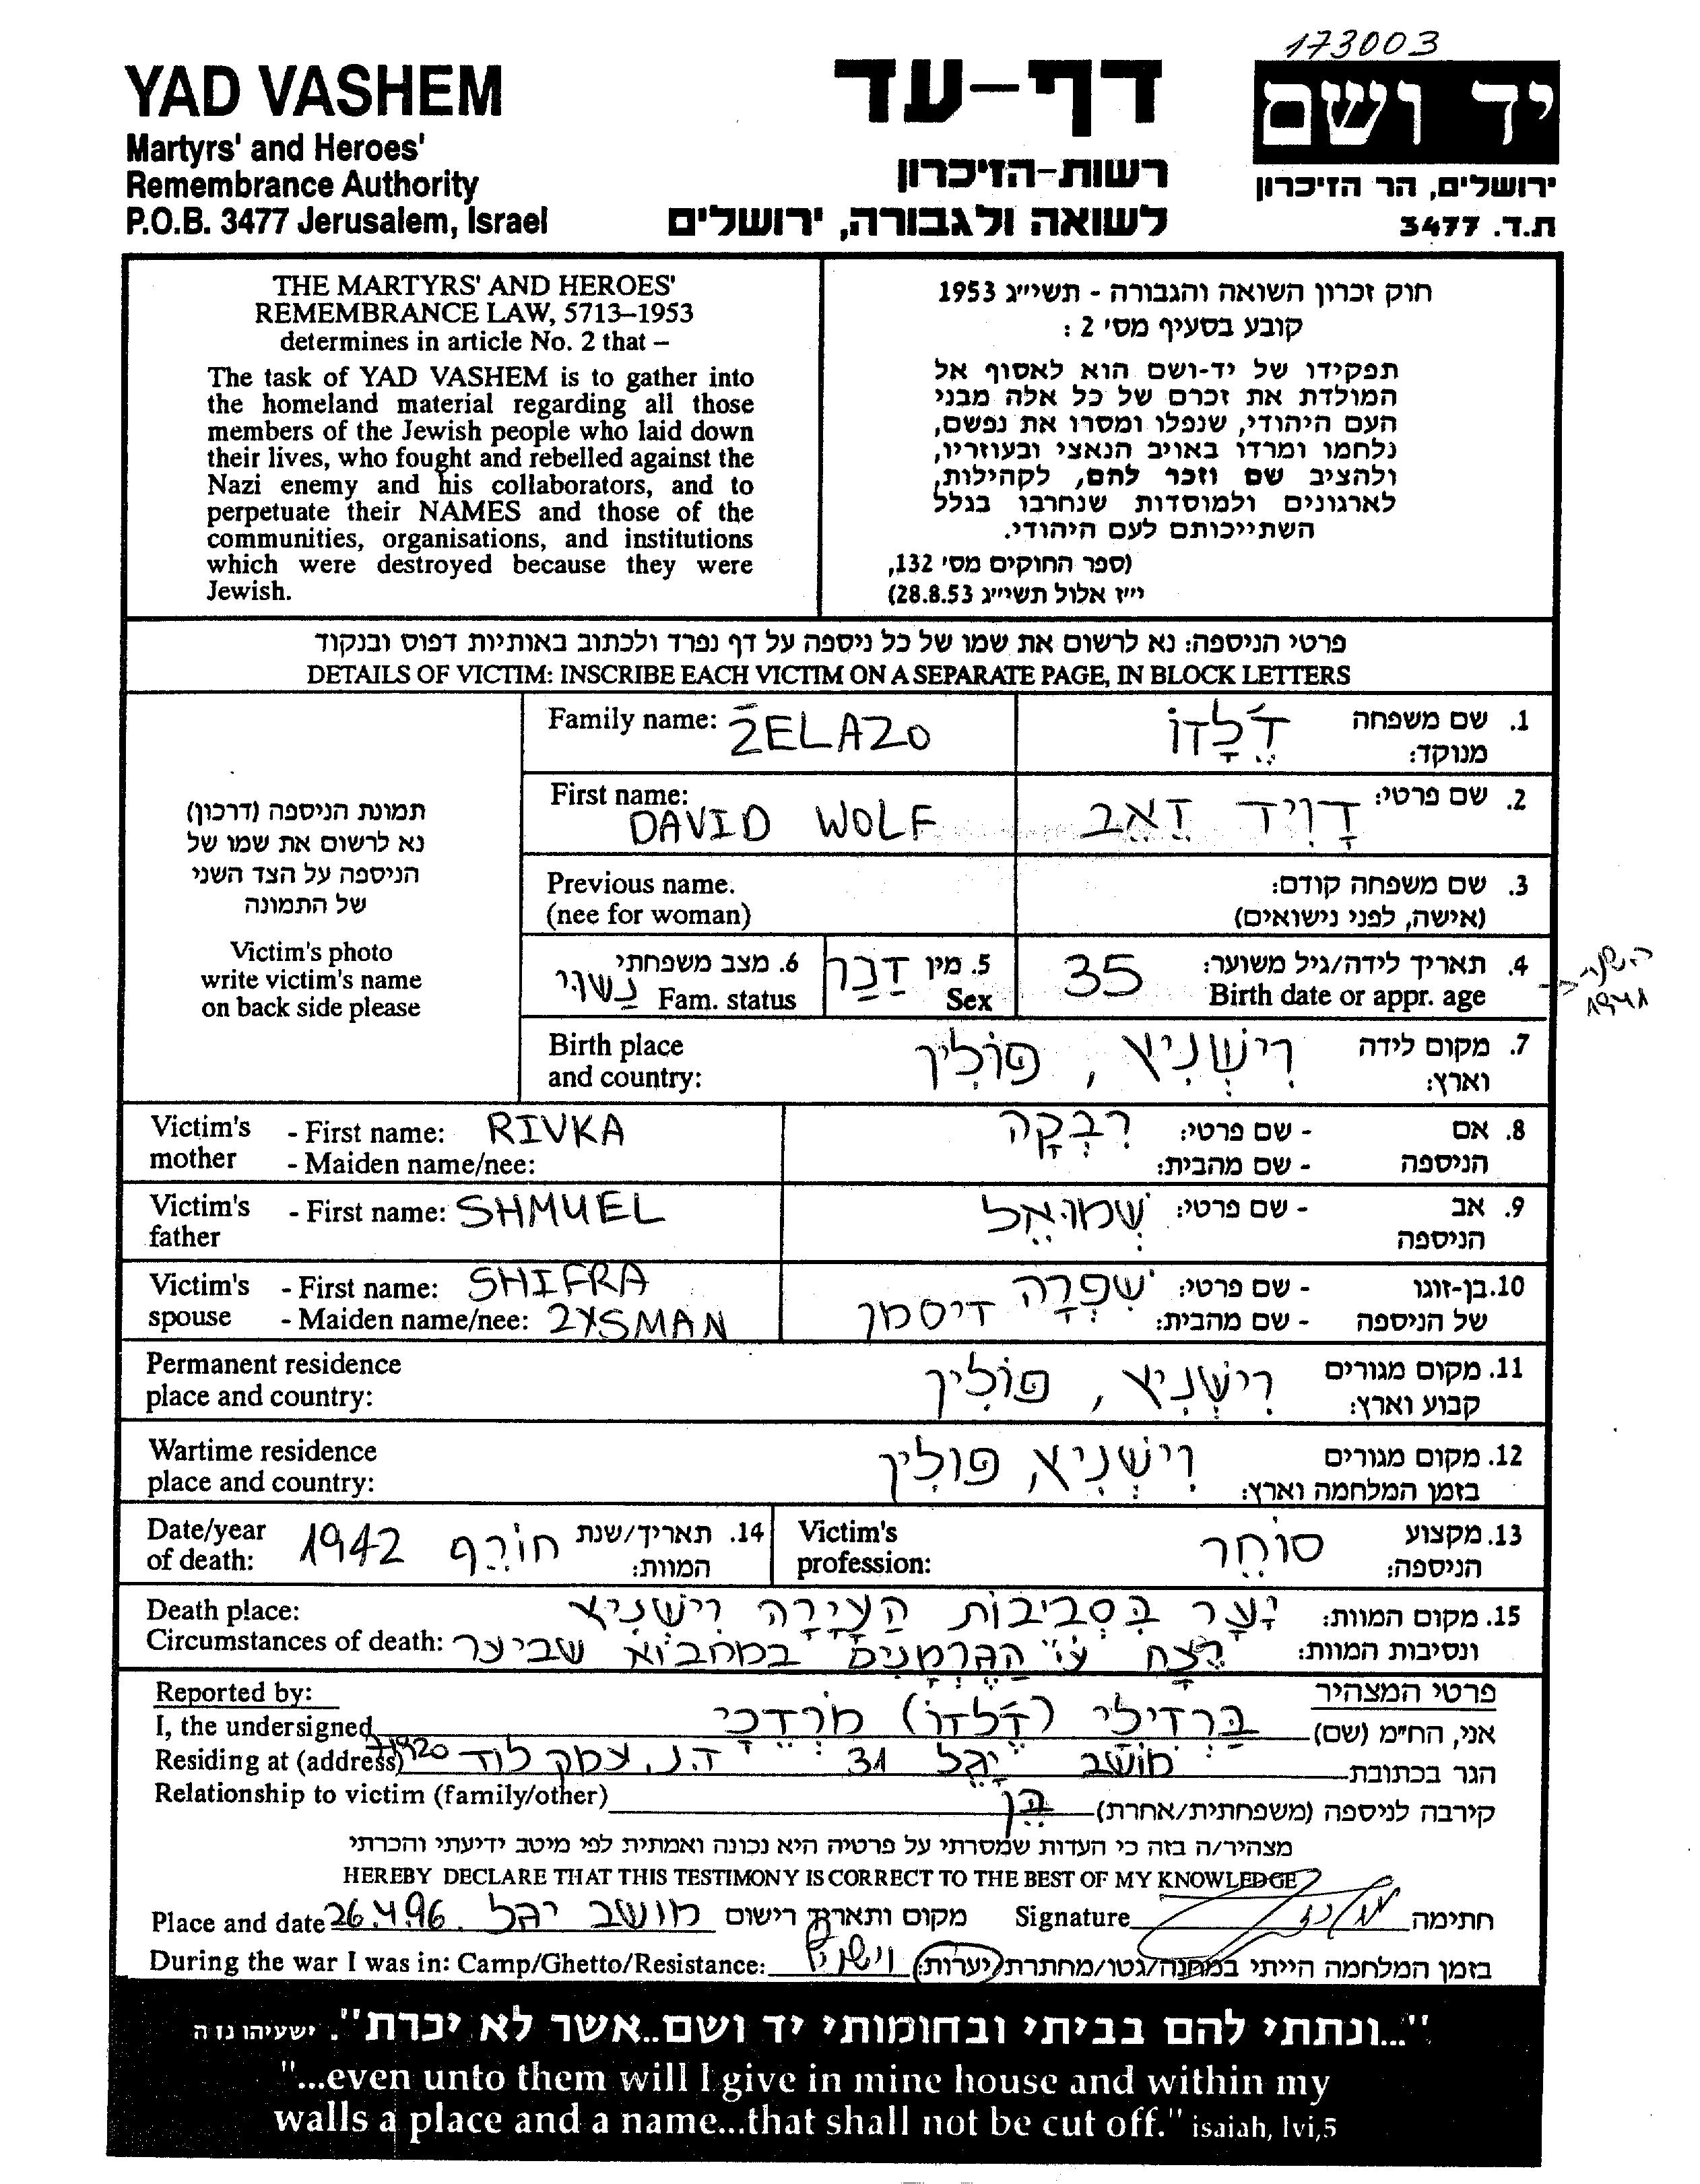 173003
YAD VASHEM
Martyrs' and Heroes'
Remembrance Authority
P.O.B. 3477 Jerusalem, Israel
דף-עד
רשות-הזיכרון
לשואה ולגבורה, ירושלים
יד ושם
ירושלים, הר הזיכרון
ת.ד. 3477
THE MARTYRS' AND HEROES'
REMEMBRANCE LAW, 5713–1953
determines in article No. 2 that –
The task of YAD VASHEM is to gather into
the homeland material regarding all those
members of the Jewish people who laid down
their lives, who fought and rebelled against the
Nazi enemy and his collaborators, and to
perpetuate their NAMES and those of the
communities, organisations, and institutions
which were destroyed because they were
Jewish.
חוק זכרון השואה והגבורה - תשי״ג 1953
קובע בסעיף מס׳ 2 :
תפקידו של יד-ושם הוא לאסוף אל
המולדת את זכרם של כל אלה מבני
העם היהודי, שנפלו ומסרו את נפשם,
נלחמו ומרדו באויב הנאצי ובעוזריו,
ולהציב שם וזכר להם, לקהילות,
לארגונים ולמוסדות שנחרבו בגלל
השתייכותם לעם היהודי.
(ספר החוקים מס׳ 132,
י״ז אלול תשי״ג 28.8.53)
פרטי הניספה: נא לרשום את שמו של כל ניספה על דף נפרד ולכתוב באותיות דפוס ובנקוד
DETAILS OF VICTIM: INSCRIBE EACH VICTIM ON A SEPARATE PAGE, IN BLOCK LETTERS
תמונת הניספה (דרכון)
נא לרשום את שמו של
הניספה על הצד השני
של התמונה
Victim's photo
write victim's name
on back side please
Family name: ŻELAZO
1. שם משפחה מנוקד: זֶ'לָזוֹ
First name: DAVID WOLF
2. שם פרטי: דָוִיד זְאֵב
Previous name.
(nee for woman)
3. שם משפחה קודם:
(אישה, לפני נישואים)
4. תאריך לידה/גיל משוער: 35
Birth date or appr. age
1941
5. מין זָכָר
Sex
6. מצב משפחתי נָשׂוּי
Fam. status
Birth place
and country:
7. מקום לידה וארץ: וִישְׁנִיץ, פּוֹלִין
Victim's mother - First name: RIVKA
- Maiden name/nee:
8. אם הניספה - שם פרטי: רִבְקָה
- שם מהבית:
Victim's father - First name: SHMUEL
9. אב הניספה - שם פרטי: שְׁמוּאֵל
Victim's spouse - First name: SHIFRA
- Maiden name/nee: ZYSMAN
10. בן-זוגו של הניספה - שם פרטי: שִׁפְרָה
- שם מהבית: זיסמן
Permanent residence
place and country:
11. מקום מגורים קבוע וארץ: וִישְׁנִיץ, פּוֹלִין
Wartime residence
place and country:
12. מקום מגורים בזמן המלחמה וארץ: וִישְׁנִיץ, פּוֹלִין
Date/year
of death:
14. תאריך/שנת המוות: חוֹרֶף 1942
Victim's
profession:
13. מקצוע הניספה: סוֹחֵר
Death place:
15. מקום המוות: יַעַר בִּסְבִיבוֹת הַעֲיָירָה וִישְׁנִיץ
Circumstances of death:
ונסיבות המוות: נִרְצַח ע"י הַגֶּרְמָנִים במחבוא שביער
Reported by:
פרטי המצהיר
I, the undersigned
אני, הח״מ (שם) בַּרְזִילַי (זֶ'לָזוֹ) מוֹרְדֳּכַי
Residing at (address)
הגר בכתובת מוֹשָׁב יָגֵל 31 ד.נ. עמק לוד
Relationship to victim (family/other)
קירבה לניספה (משפחתית/אחרת) בֵּן
מצהיר/ה בזה כי העדות שמסרתי על פרטיה היא נכונה ואמתית לפי מיטב ידיעתי והכרתי
HEREBY DECLARE THAT THIS TESTIMONY IS CORRECT TO THE BEST OF MY KNOWLEDGE
Place and date 26.4.96. מושב יגל מקום ותאריך רישום Signature חתימה
During the war I was in: Camp/Ghetto/Resistance:
בזמן המלחמה הייתי במחנה/גטו/מחתרת/יערות: וישניץ
"...ונתתי להם בביתי ובחומותי יד ושם..אשר לא יכרת". ישעיהו נו ה
"...even unto them will I give in mine house and within my
walls a place and a name...that shall not be cut off." isaiah, lvi,5